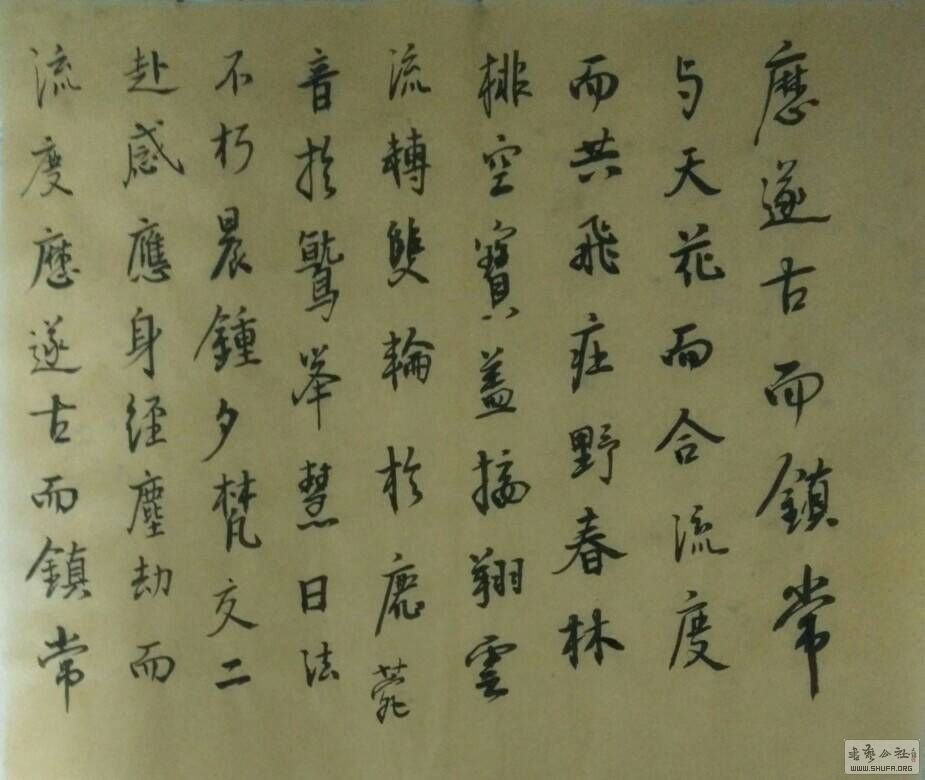 流度歷遂古而鎮常
赴感應身經塵劫而
不朽晨鍾夕梵交二
音於鷲峯慧日法
流轉雙輪於鹿菀
排空寶蓋接翔雲
而共飛庄野春林
与天花而合流度
歷遂古而鎮常
书艺公社
WWW.SHUFA.ORG